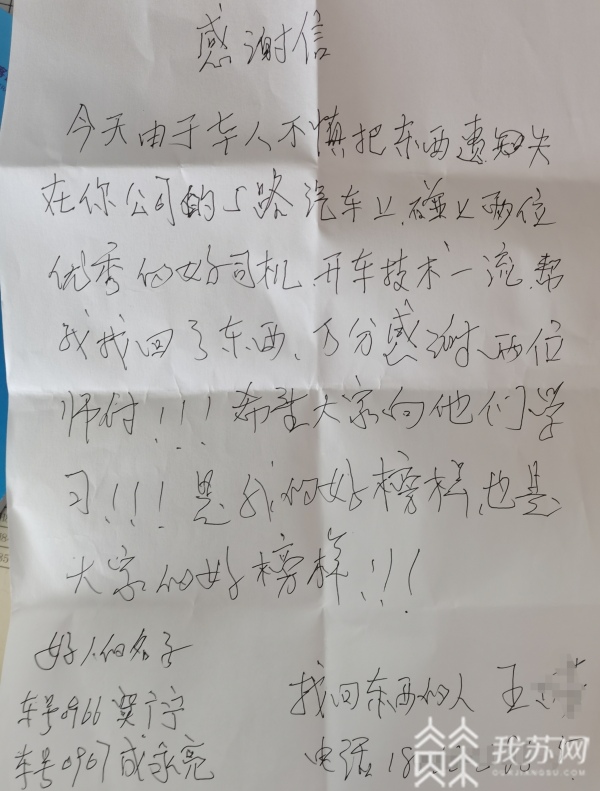 感谢信
今天由于本人不慎把东西遗失
在你公司的5路汽车上,碰上两位
优秀的好司机,开车技术一流,帮
我找回了东西,万分感谢两位
师付!!!希望大家向他们学
习!!!是我的好榜样,也是
大家的好榜样!!!
好人的名子
车号0966 贾广宁
车号0967 成永亮
找回东西的人 王
电话 18
我苏网
OURJIANGSU.COM